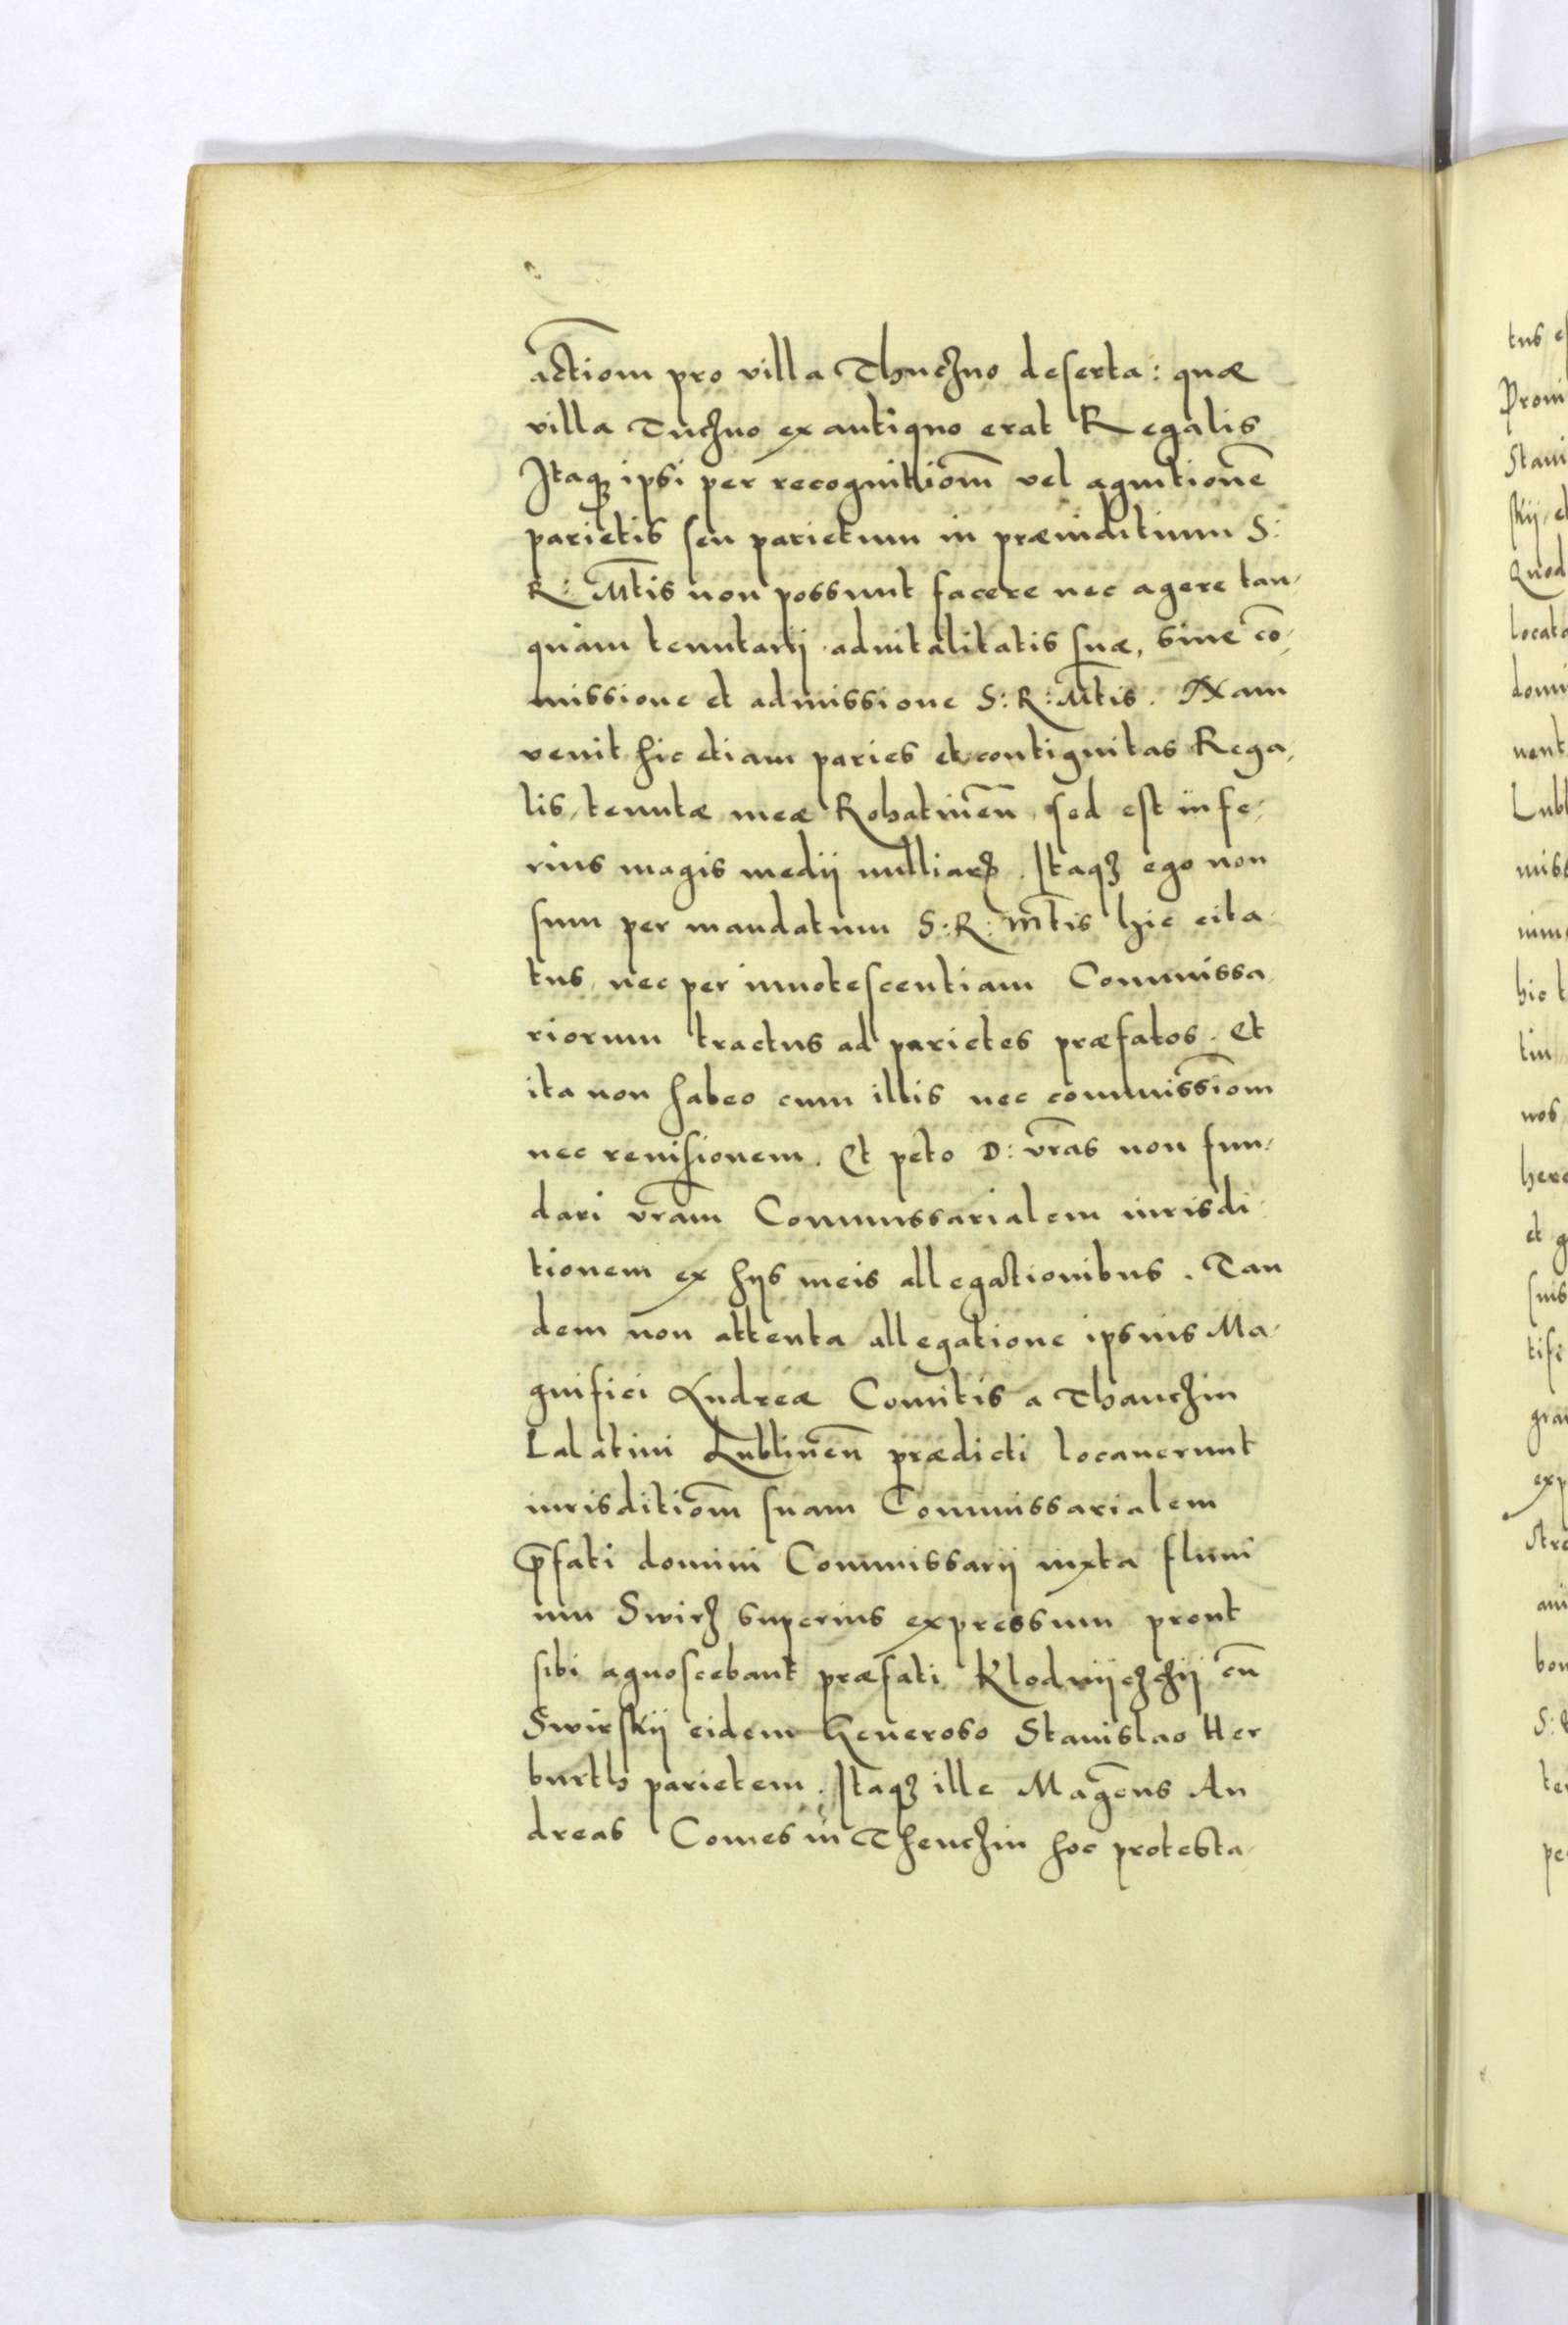 actiom̄ pro villa Thuczno deserta: quæ
villa Tuczno ex antiquo erat Regalis
Itaqȝ ipsi per recognitiom̄ vel agnitionē
parietis seu parietum in præiuditium S:
R: Mt̄is non possunt facere nec agere tan,
quam tenutarij aduitalitatis suæ, sine cō,
missione et admissione S: R: Mt̄is. Nam
venit hic etiam paries et contiguitas Rega,
lis, tenutæ meæ Rohatineñ, sed est infe,
rius magis medij milliarȝ. Itaqȝ ego non
sum per mandatum S: R: Mt̄is hic cita,
tus, nec per innotescentiam Commissa,
riorum tractus ad parietes præfatos. Et
ita non habeo cum illis nec commissiom̄
nec reuisionem. Et peto D: vr̄as non fun,
dari vr̄am Commissarialem iurisdi,
tionem ex hijs meis allegationibus. Tan
dem non attenta allegatione ipsius Ma,
gnifici Andreæ Comitis a Thanczin
Palatini Lublineñ prædicti locauerunt
iurisditiom̄ suam Commissarialem
p̄fati domini Commissarij iuxta fluui
um Swirz superius expressum prout
sibi agnoscebant præfati Klodniiczchij cū
Swirskij eidem Generoso Stanislao Her
burth parietem. Itaqȝ ille Magc̄us An
dreas Comes in Thenczin hoc protesta,